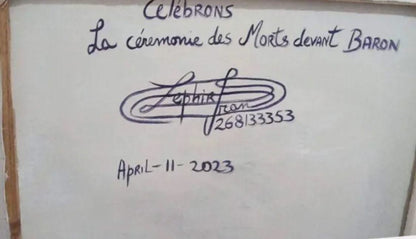 CELÉBRONS
La céremonie des Morts devant BARON
Zephirin
Fran
268133353
APRIL-11-2023